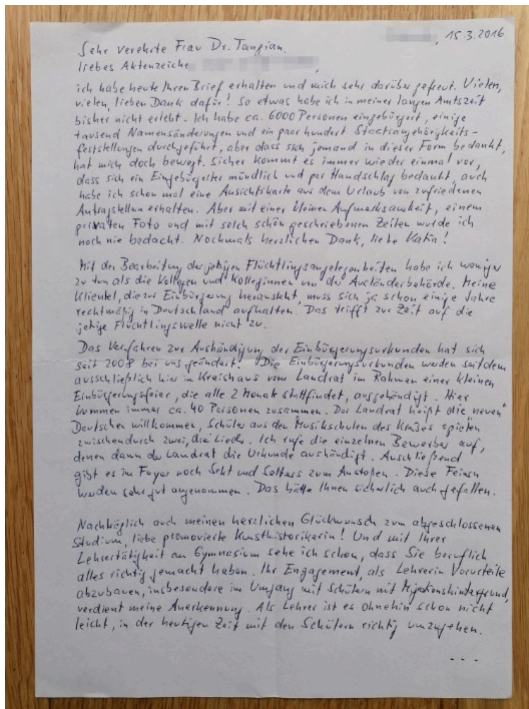 , 15.3.2016
Sehr verehrte Frau Dr. Tangian,
liebes Aktenzeichen ,
ich habe heute Ihren Brief erhalten und mich sehr darüber gefreut. Vielen,
vielen, lieben Dank dafür! So etwas habe ich in meiner langen Amtszeit
bisher nicht erlebt. Ich habe ca. 6000 Personen eingebürgert, einige
tausend Namensänderungen und ein paar hundert Staatsangehörigkeits-
feststellungen durchgeführt, aber dass sich jemand in dieser Form bedankt,
hat mich doch bewegt. Sicher kommt es immer wieder einmal vor,
dass sich ein Eingebürgerter mündlich und per Handschlag bedankt, auch
habe ich schon mal eine Ansichtskarte aus dem Urlaub von zufriedenen
Antragstellern erhalten. Aber mit einer kleinen Aufmerksamkeit, einem
privaten Foto und mit solch schön geschriebenen Zeilen wurde ich
noch nie bedacht. Nochmals herzlichen Dank, liebe Katia!
Mit der Bearbeitung der jetzigen Flüchtlingsangelegenheiten habe ich weniger
zu tun als die Kollegen und Kolleginnen von der Ausländerbehörde. Meine
Klientel, die zur Einbürgerung heransteht, muss sich ja schon einige Jahre
rechtmäßig in Deutschland aufhalten. Das trifft zur Zeit auf die
jetzige Flüchtlingswelle nicht zu.
Das Verfahren zur Aushändigung der Einbürgerungsurkunden hat sich
seit 2008 bei uns geändert. Die Einbürgerungsurkunden werden seitdem
ausschließlich hier im Kreishaus vom Landrat im Rahmen einer kleinen
Einbürgerungsfeier, die alle 2 Monate stattfindet, ausgehändigt. Hier
kommen immer ca. 40 Personen zusammen. Der Landrat heißt die "neuen"
Deutschen willkommen, Schüler aus den Musikschulen des Kreises spielen
zwischendurch zwei, drei Lieder. Ich rufe die einzelnen Bewerber auf,
denen dann der Landrat die Urkunde aushändigt. Anschließend
gibt es im Foyer noch Sekt und Saltess zum Anstoßen. Diese Feiern
werden sehr gut angenommen. Das hätte Ihnen sicherlich auch gefallen.
Nachträglich auch meinen herzlichen Glückwunsch zum abgeschlossenen
Studium, liebe promovierte Kunsthistorikerin! Und mit Ihrer
Lehrertätigkeit am Gymnasium sehe ich schon, dass Sie beruflich
alles richtig gemacht haben. Ihr Engagement, als Lehrerin Vorurteile
abzubauen, insbesondere im Umgang mit Schülern mit Migrationshintergrund,
verdient meine Anerkennung. Als Lehrer ist es ohnehin schon nicht
leicht, in der heutigen Zeit mit den Schülern richtig umzugehen.
---